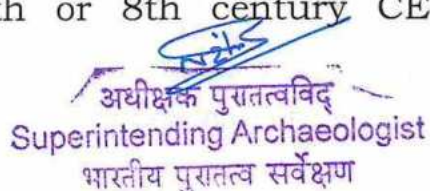 th or 8th century CE
अधीक्षक पुरातत्वविद्
Superintending Archaeologist
भारतीय पुरातत्व सर्वेक्षण